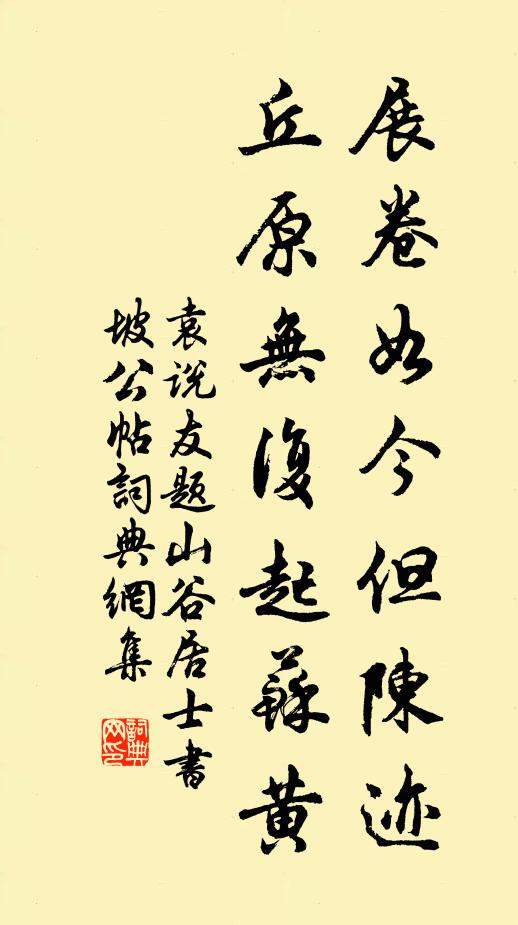 展卷如今但陳迹
丘原無復起蘇黄
袁说友题山谷居士書
坡公帖詞典網集
詞典網印